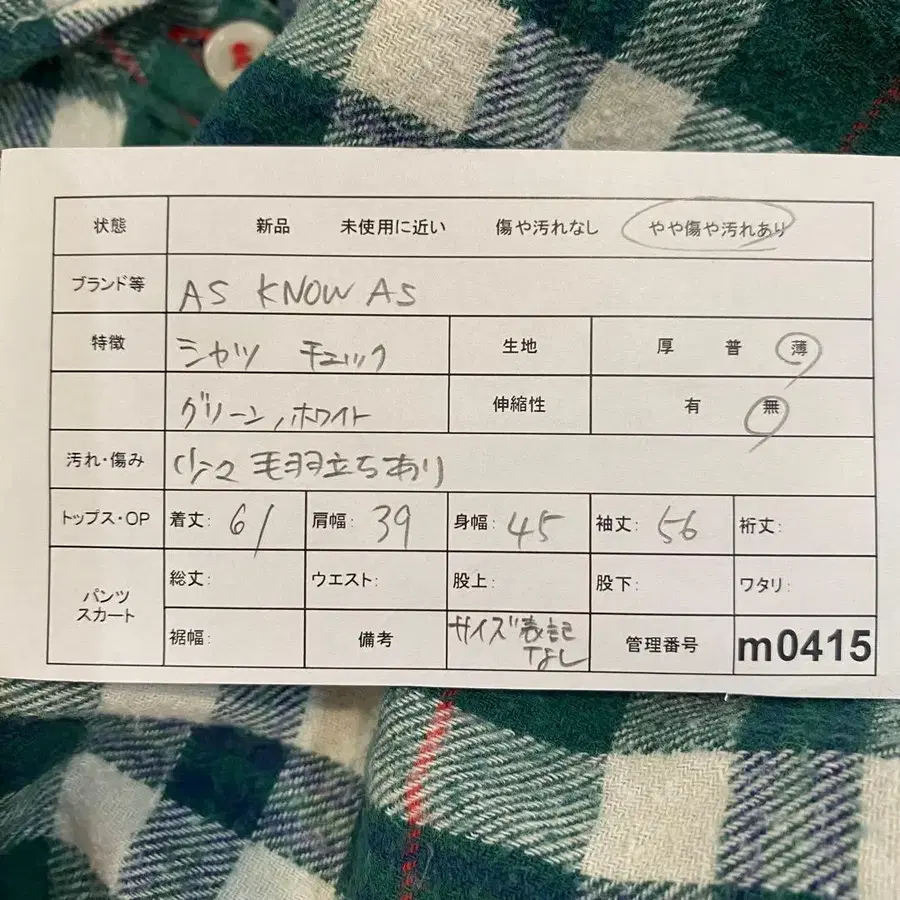 状態 新品 未使用に近い 傷や汚れなし やや傷や汚れあり
ブランド等 AS KNOW AS
特徴 シャツ チェック 生地 厚 普 薄
グリーン,ホワイト 伸縮性 有 無
汚れ・傷み 少々毛羽立ちあり
トップス・OP 着丈: 61 肩幅: 39 身幅: 45 袖丈: 56 裄丈:
パンツ
スカート
総丈: ウエスト: 股上: 股下: ワタリ:
裾幅: 備考 サイズ表記
なし
管理番号 m0415